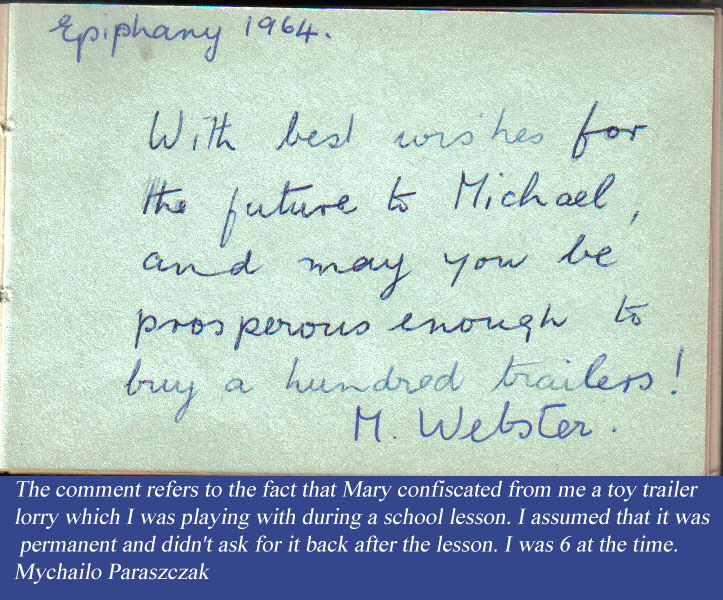 Epiphany 1964.
With best wishes for
the future to Michael,
and may you be
prosperous enough to
buy a hundred trailers!
M. Webster.
The comment refers to the fact that Mary confiscated from me a toy trailer
lorry which I was playing with during a school lesson. I assumed that it was
permanent and didn't ask for it back after the lesson. I was 6 at the time.
Mychailo Paraszczak